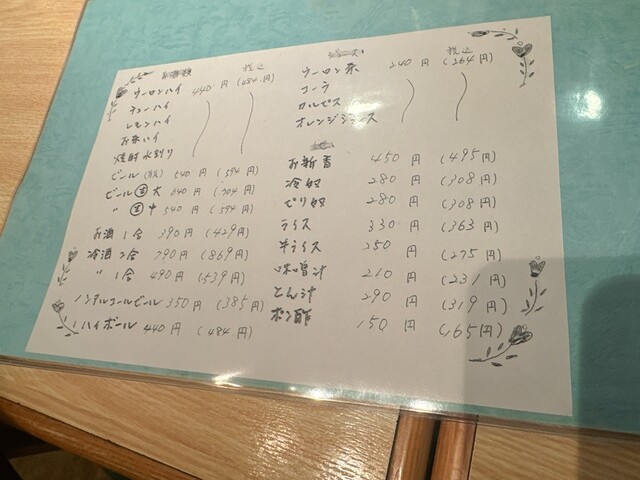 税込
ウーロンハイ 440円 (484円)
チューハイ
レモンハイ
お茶ハイ
焼酎水割り
ビール(瓶) 540円 (594円)
ビール 生 大 640円 (704円)
〃 生 中 540円 (594円)
お酒 1合 390円 (429円)
冷酒 2合 790円 (869円)
〃 1合 490円 (539円)
ノンアルコールビール 350円 (385円)
ハイボール 440円 (484円)
ジュース 税込
ウーロン茶 240円 (264円)
コーラ
カルピス
オレンジジュース
お新香 450円 (495円)
冷奴 280円 (308円)
ピリ奴 280円 (308円)
ライス 330円 (363円)
半ライス 250円 (275円)
味噌汁 210円 (231円)
とん汁 290円 (319円)
ポン酢 150円 (165円)